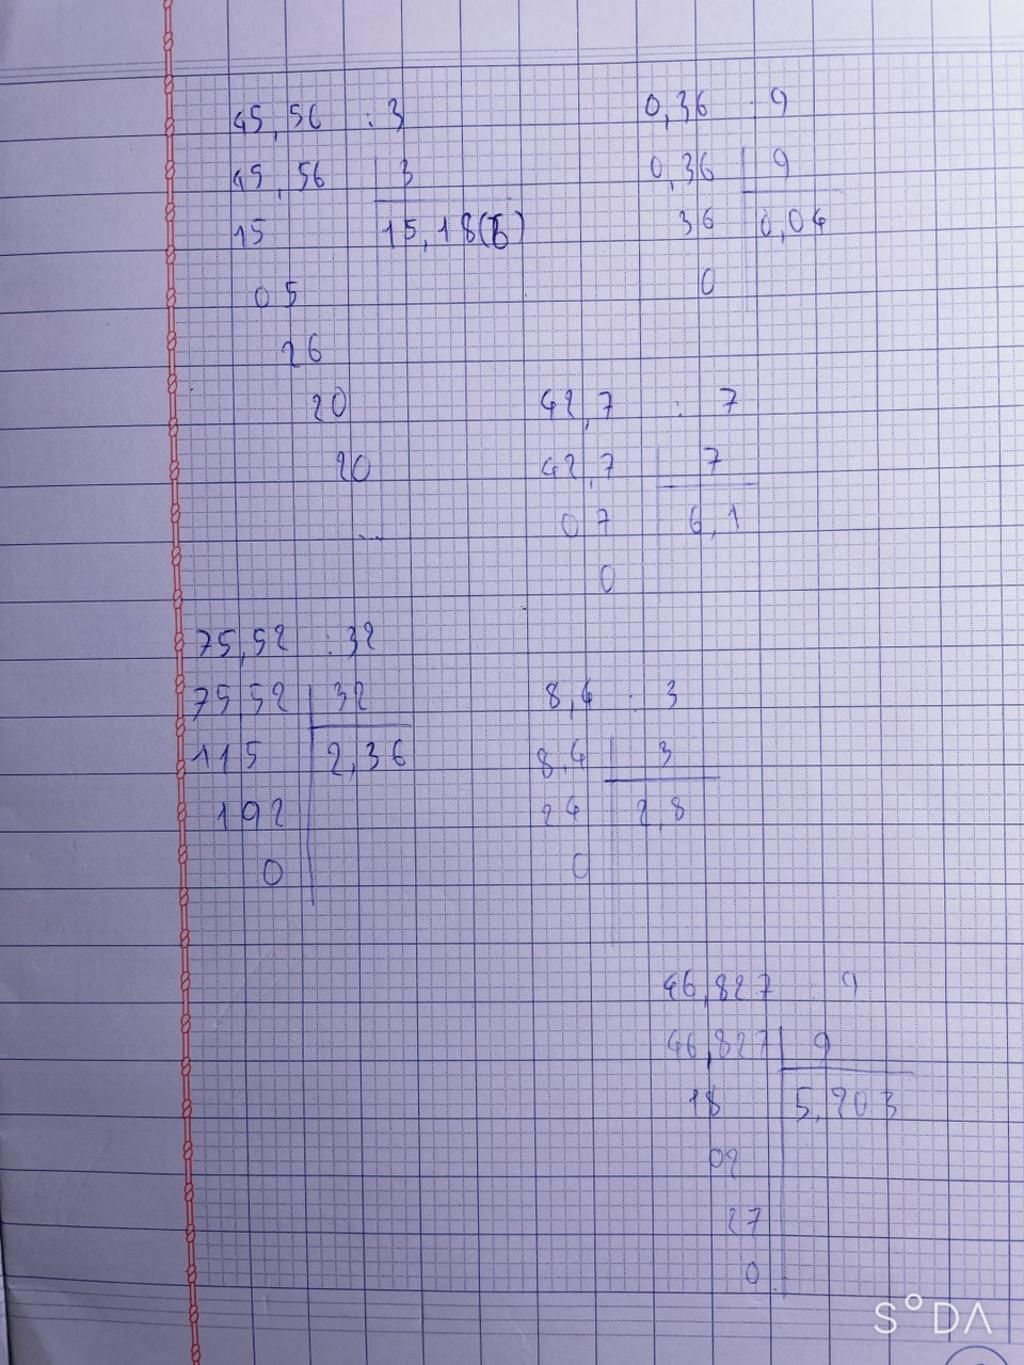 45,56 : 3
45,56 3
15 15,18(6)
05
26
20
20
...
0,36 : 9
0,36 9
36 0,04
0
42,7 : 7
42,7 7
07 6,1
0
75,52 : 32
75,52 32
115 2,36
192
0
8,4 : 3
8,4 3
24 2,8
0
46,827 : 9
46,827 9
18 5,203
02
27
0
S°DA